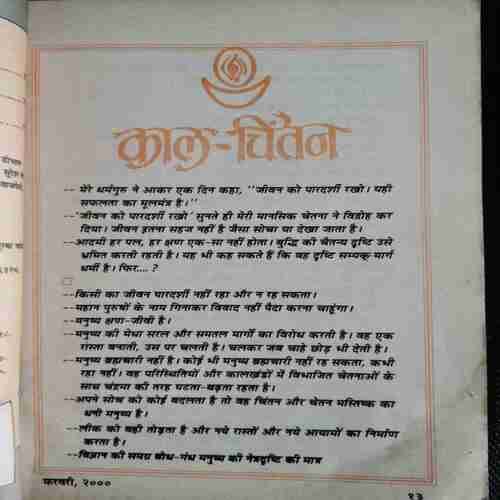 काल-चिंतन
-- मेरे धर्मगुरु ने आकर एक दिन कहा, ''जीवन को पारदर्शी रखो। यही
सफलता का मूलमंत्र है।''
--'जीवन को पारदर्शी रखो' सुनते ही मेरी मानसिक चेतना ने विद्रोह कर
दिया। जीवन इतना सहज नहीं है जैसा सोचा या देखा जाता है।
--आदमी हर पल, हर क्षण एक-सा नहीं होता। बुद्धि की चैतन्य दृष्टि उसे
भ्रमित करती रहती है। यह भी कह सकते हैं कि वह दृष्टि सम्यक् मार्ग
धर्मी है। फिर.... ?
--किसी का जीवन पारदर्शी नहीं रहा और न रह सकता।
--महान पुरुषों के नाम गिनाकर विवाद नहीं पैदा करना चाहूंगा।
--मनुष्य क्षण-जीवी है।
--मनुष्य की मेधा सरल और समतल मार्गों का विरोध करती है। वह एक
रास्ता बनाती, उस पर चलती है। चलकर जब चाहे छोड़ भी देती है।
--मनुष्य ब्रह्मचारी नहीं है। कोई भी मनुष्य ब्रह्मचारी नहीं रह सकता, कभी
रहा नहीं। वह परिस्थितियों और कालखंडों में विभाजित चेतनाओं के
साथ चंद्रमा की तरह घटता-बढ़ता रहता है।
--अपने सोच को कोई बदलता है तो वह चिंतन और चेतन मस्तिष्क का
धनी मनुष्य है।
--लीक को वही तोड़ता है और नये रास्तों और नये आयामों का निर्माण
करता है।
--विज्ञान की समग्र बोध-गंध मनुष्य की नेत्रदृष्टि की मात्र
फरवरी, २०००
१३